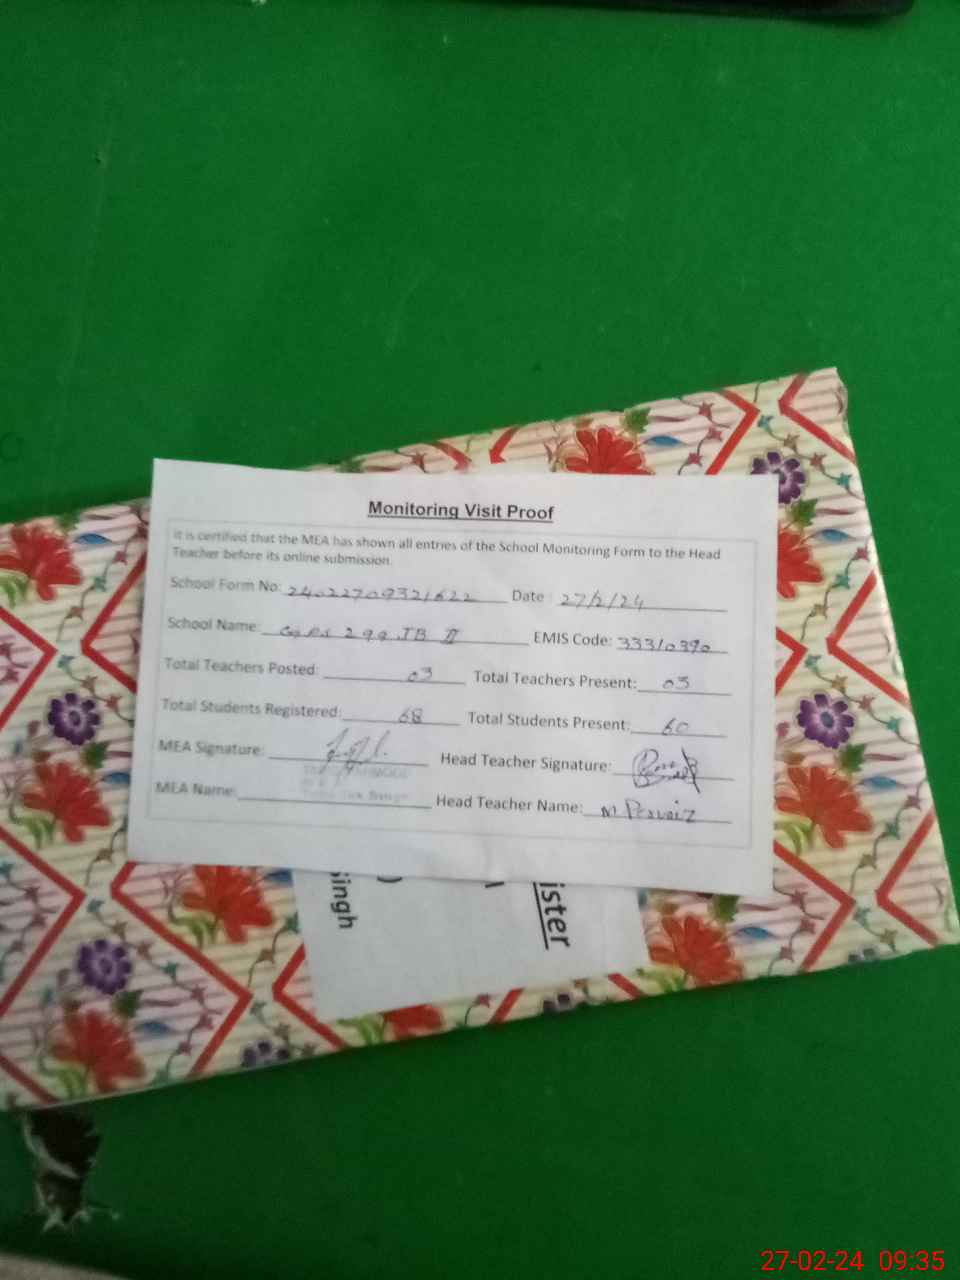 Monitoring Visit Proof
It is certified that the MEA has shown all entries of the School Monitoring Form to the Head
Teacher before its online submission.
School Form No: 24022709321622 Date: 27/2/24
School Name: GPS 299 JB II EMIS Code: 33310390
Total Teachers Posted: 03 Total Teachers Present: 03
Total Students Registered: 68 Total Students Present: 60
MEA Signature: Head Teacher Signature:
MEA Name: Head Teacher Name: M Pervaiz
ister
ingh
27-02-24 09:35